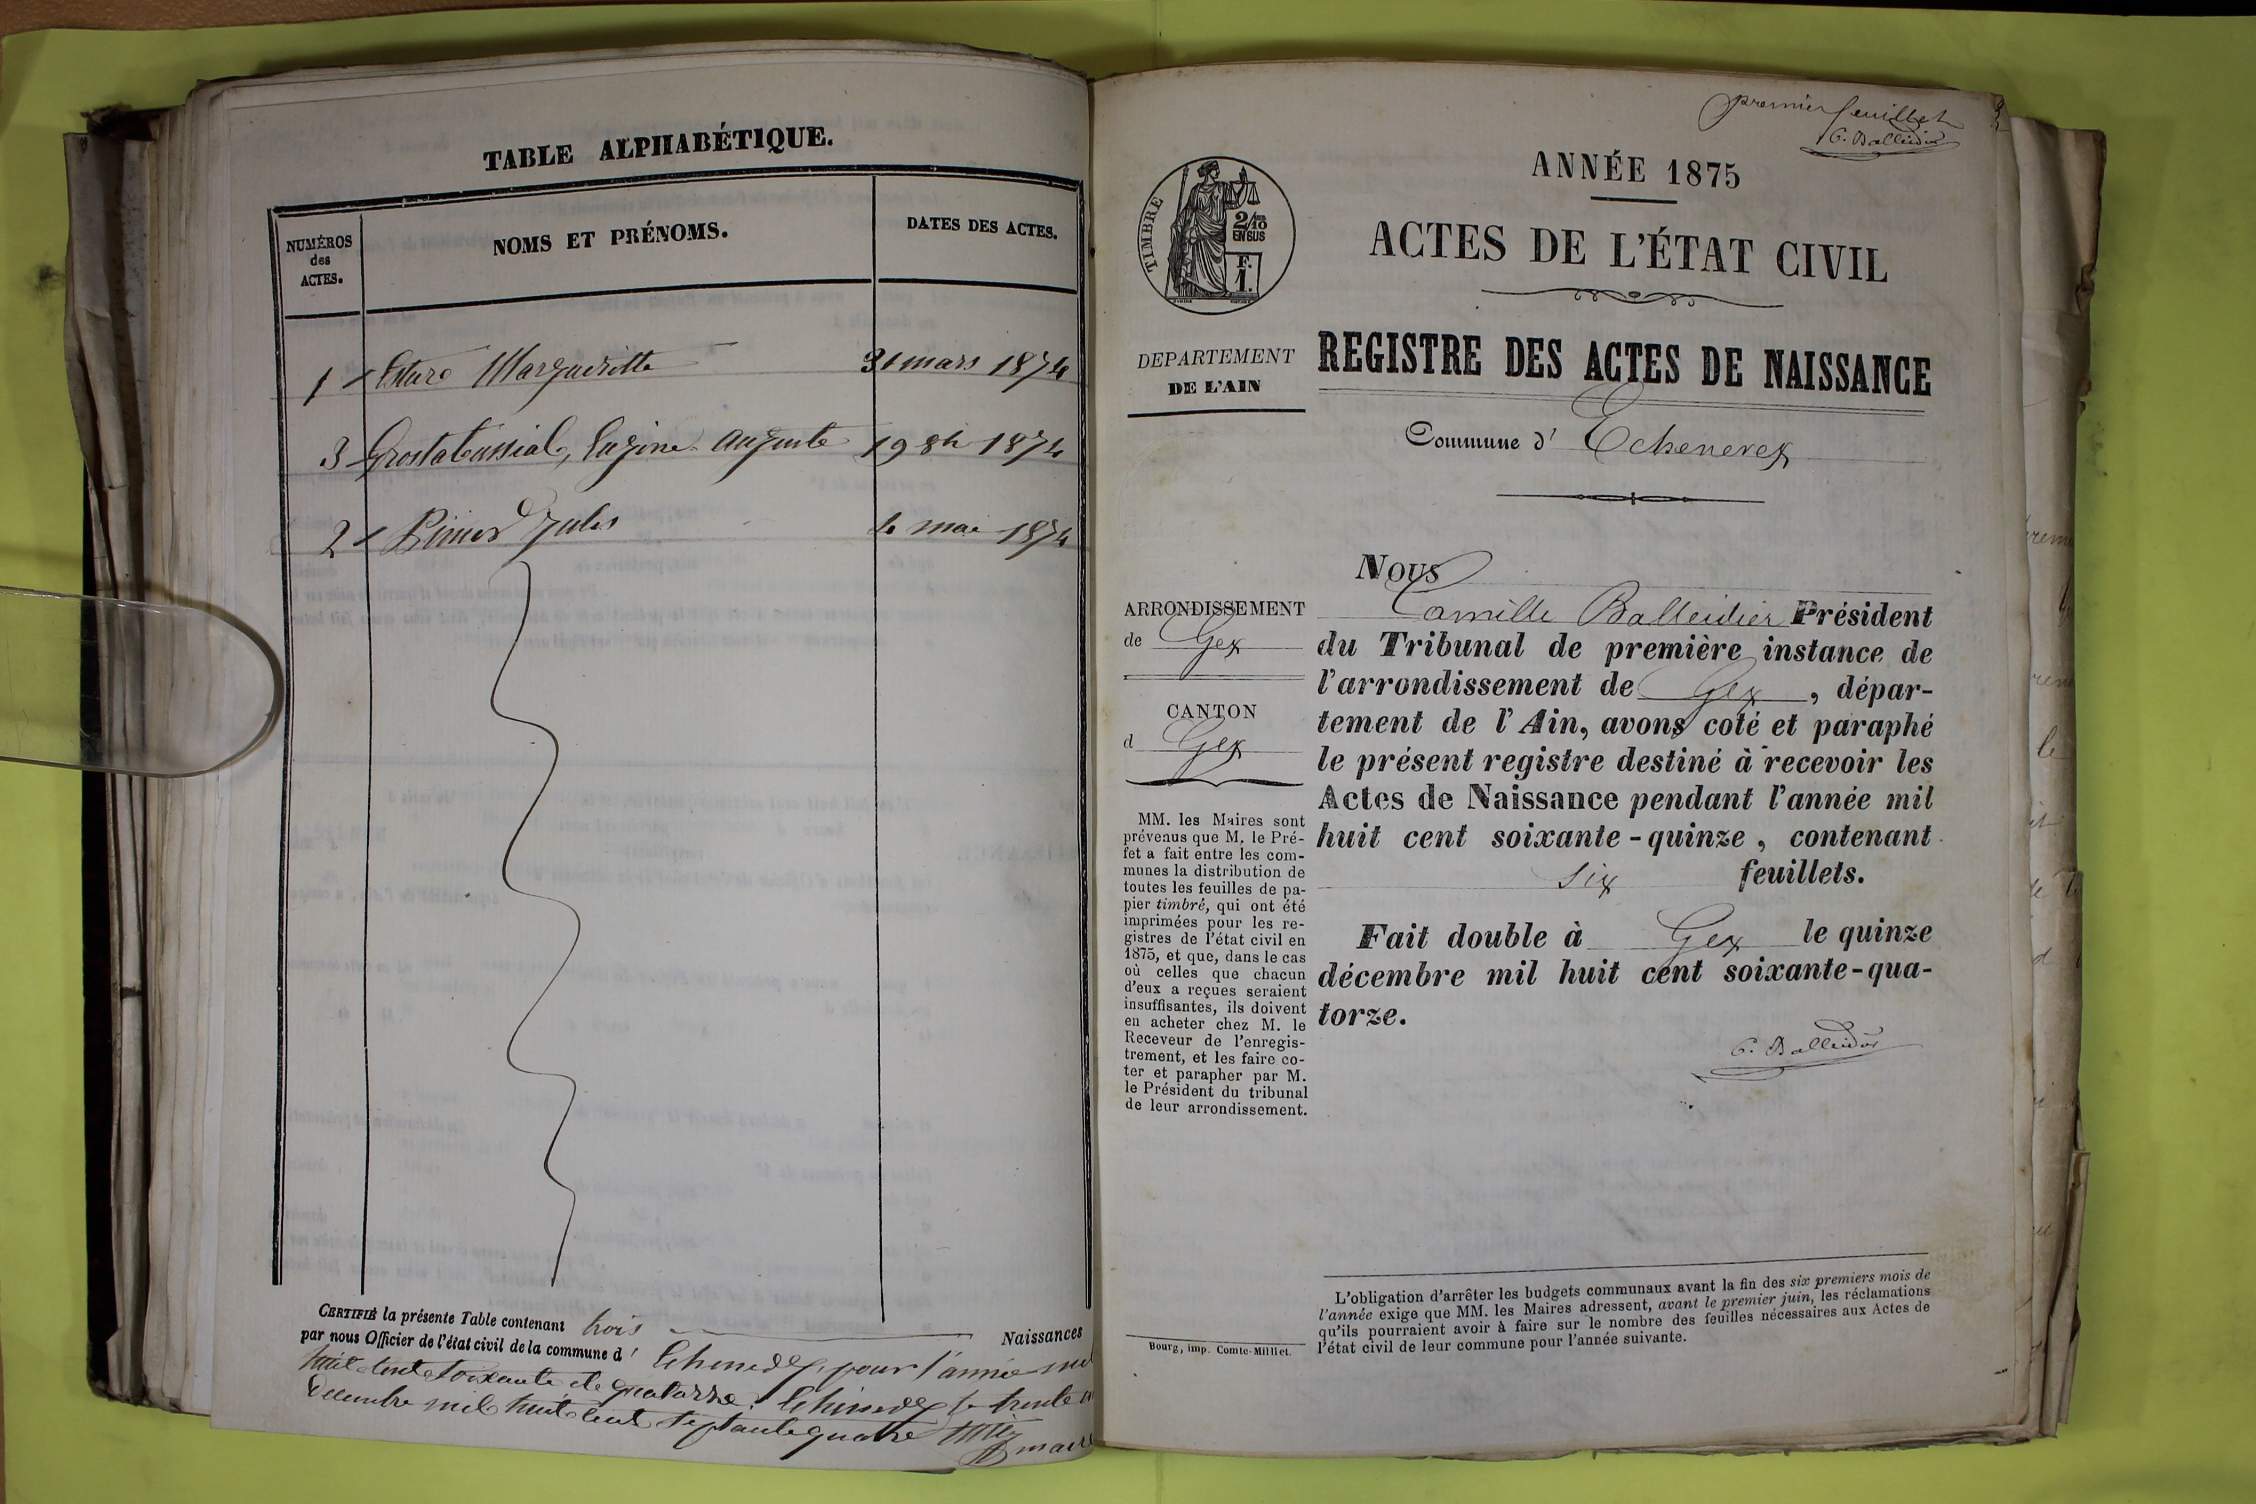 TABLE ALPHABÉTIQUE.
NUMÉROS des ACTES.
NOMS ET PRÉNOMS.
DATES DES ACTES.
1 Margueritte 31 mars 1874
3 Auguste 19 8bre 1874
2 Jules 4 mai 1874
CERTIFIÉ la présente Table contenant trois Naissances
par nous Officier de l'état civil de la commune d' pour l'année mil
huit cent soixante et quatorze. le trente
Decembre mil huit cent septante quatre
maire
premier feuillet
C. Balleidier
ANNÉE 1875
TIMBRE
2/10
EN SUS
F.
1.
ACTES DE L'ÉTAT CIVIL
DEPARTEMENT
DE L'AIN
REGISTRE DES ACTES DE NAISSANCE
Commune d' Echenevex
ARRONDISSEMENT
de Gex
CANTON
d Gex
MM. les Maires sont
prévenus que M. le Pré-
fet a fait entre les com-
munes la distribution de
toutes les feuilles de pa-
pier timbré, qui ont été
imprimées pour les re-
gistres de l'état civil en
1875, et que, dans le cas
où celles que chacun
d'eux a reçues seraient
insuffisantes, ils doivent
en acheter chez M. le
Receveur de l'enregis-
trement, et les faire co-
ter et parapher par M.
le Président du tribunal
de leur arrondissement.
Nous
Camille Balleidier Président
du Tribunal de première instance de
l'arrondissement de Gex, dépar-
tement de l'Ain, avons coté et paraphé
le présent registre destiné à recevoir les
Actes de Naissance pendant l'année mil
huit cent soixante-quinze, contenant
six feuillets.
Fait double à Gex le quinze
décembre mil huit cent soixante-qua-
torze.
C. Balleidier
L'obligation d'arrêter les budgets communaux avant la fin des six premiers mois de
l'année exige que MM. les Maires adressent, avant le premier juin, les réclamations
qu'ils pourraient avoir à faire sur le nombre des feuilles nécessaires aux Actes de
l'état civil de leur commune pour l'année suivante.
Bourg, imp. Comte-Milliet.